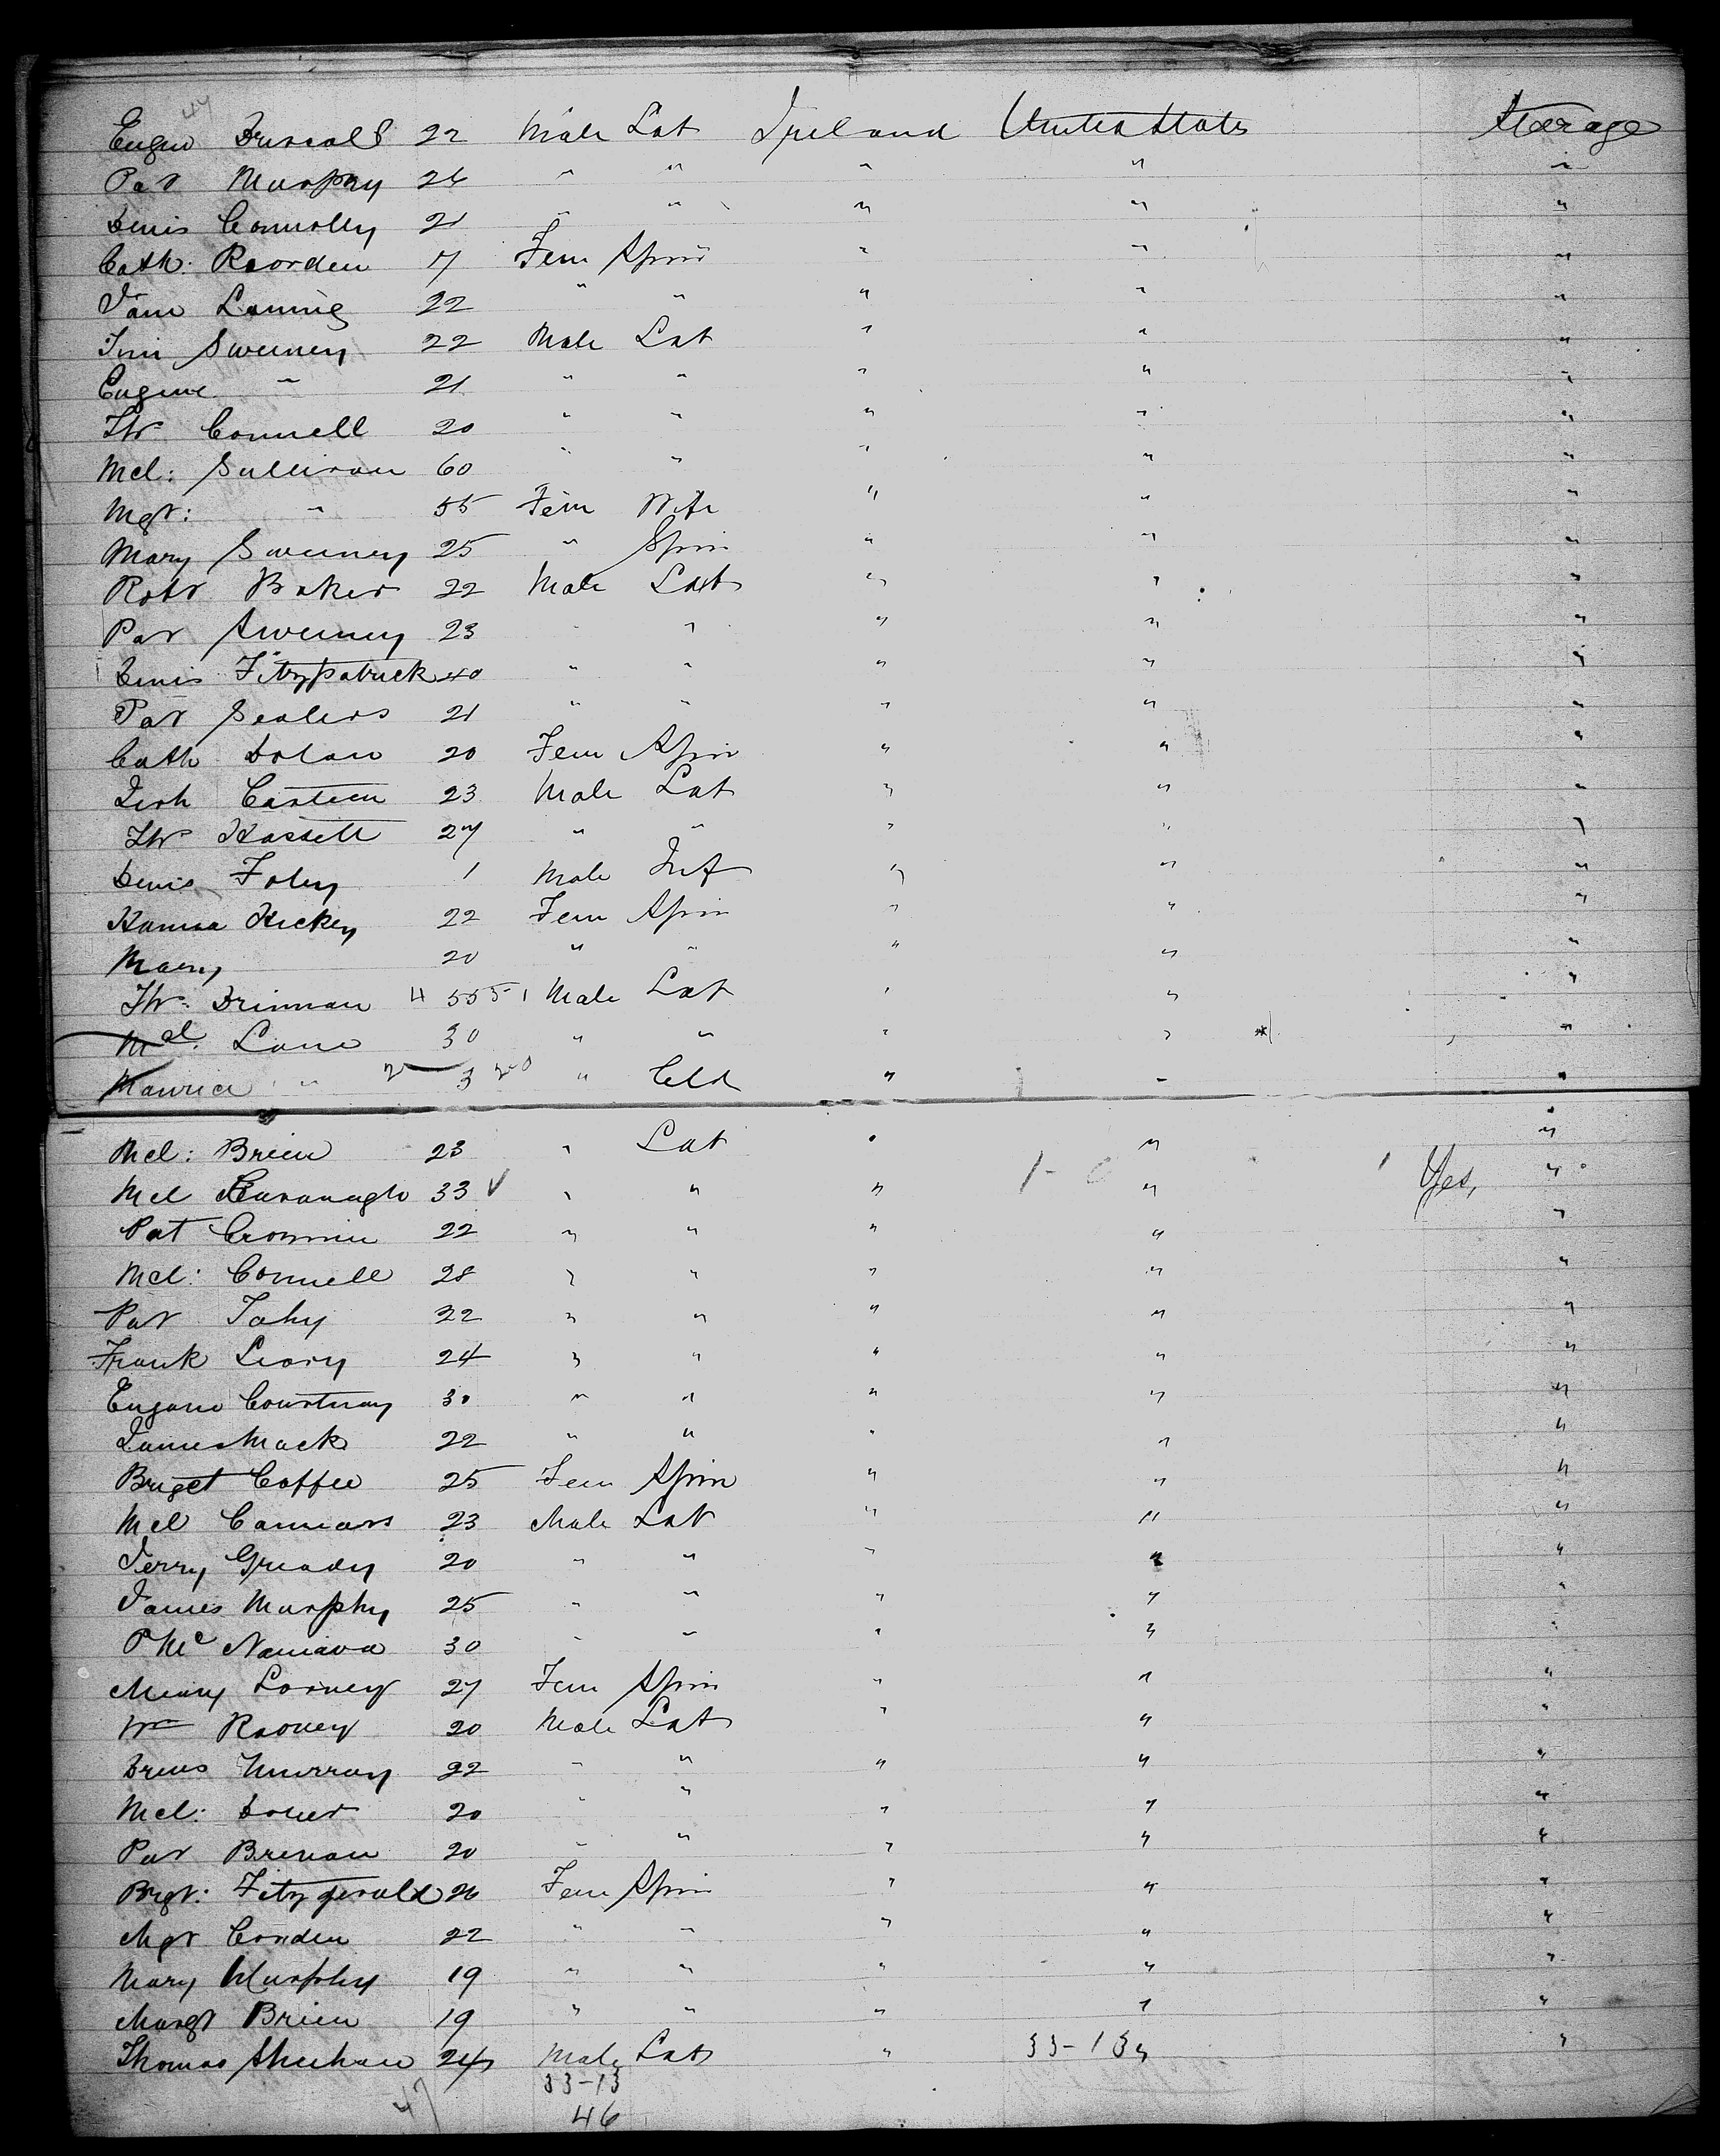 44
Eugne Driscoll 22 Male Lab Ireland United States Steerage
Pat Murphy 26 " " " " "
Denis Connolly 21 " " " " "
Cath: Reorden 17 Fem Spin " " "
Jane 22 " " " " "
Tim Sweeney 22 Male Lab " " "
Eugene " 21 " " " " "
Thos Connell 20 " " " " "
Mcl: Sullivan 60 " " " " "
Mgt: " 55 Fem Wife " " "
Mary Sweeney 25 " Spin " " "
Robt Baker 22 Male Lab " " "
Pat Sweeney 23 " " " " "
Denis Fitzpatrick 40 " " " " "
Pat 21 " " " " "
Cath Dolan 20 Fem Spin " " "
Jerh 23 Male Lab " " "
Thos Hassett 27 " " " " "
Denis Foley 1 Male Inf " " "
Hanna Hickey 22 Fem Spin " " "
Mary 20 " " " " "
Thos Drinnan 4 55 5 1 Male Lab " " "
Mcl. Lane 30 " " " " * "
Maurice " 3 " Cld " " "
Mcl: Brien 23 " Lab " " "
Mcl Kavanagh 33 " " " 1- " Yes, "
Pat Cronnin 22 " " " " "
Mcl: Connell 28 " " " " "
Pat Fahy 22 " " " " "
Frank Leary 24 " " " " "
Eugene Courtnay 30 " " " " "
James Mack 22 " " " " "
Briget Coffee 25 Fem Spin " " "
Mcl Connors 23 Male Lab " " "
Jerry Gready 20 " " " " "
James Murphy 25 " " " " "
P McNamara 30 " " " " "
Mary 27 Fem Spin " " "
Wm Rooney 20 Male Lab " " "
Denis Murray 22 " " " " "
Mcl: Dower 20 " " " " "
Pat Brenan 20 " " " " "
Brgt: Fitzgerald 26 Fem Spin " " "
Mgt Conden 22 " " " " "
Mary Murphy 19 " " " " "
Margt Brien 19 " " " " "
Thomas Sheehan 24 Male Lab " 33-13 " "
47 33-13
46